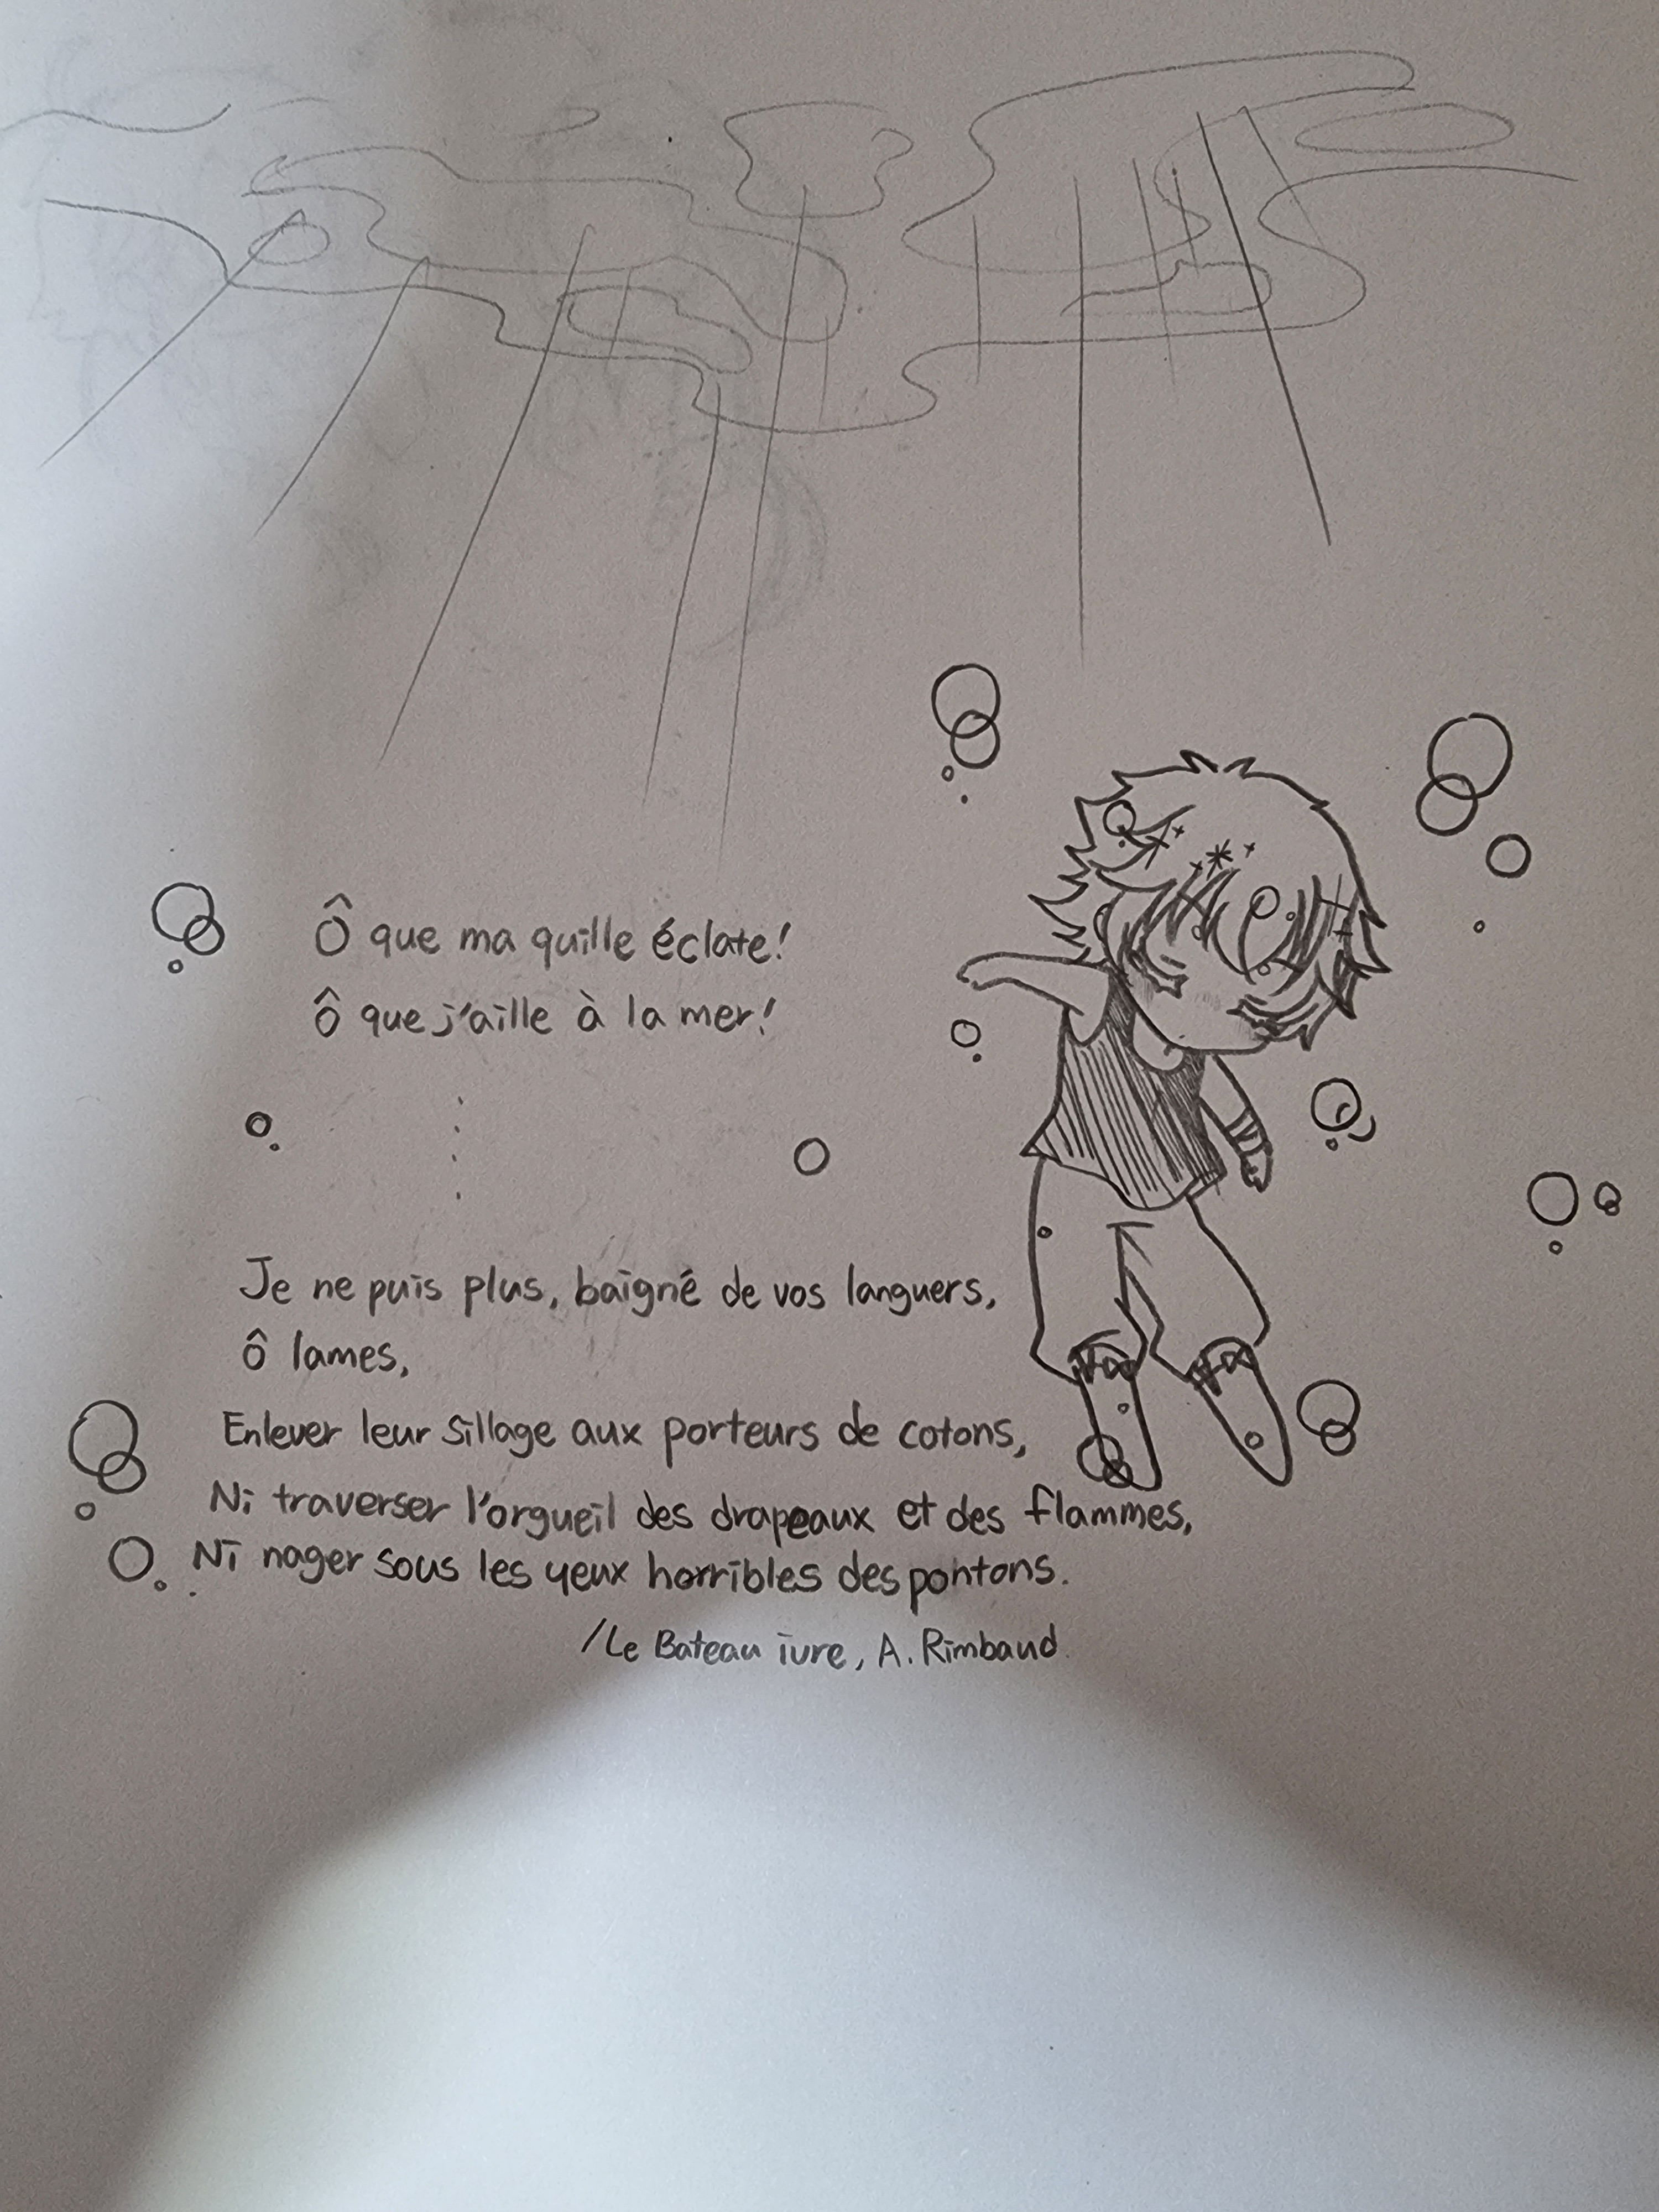 Ô que ma quille éclate!
Ô que j'aille à la mer!
Je ne puis plus, baigné de vos languers,
Ô lames,
Enlever leur sillage aux porteurs de cotons,
Ni traverser l'orgueil des drapeaux et des flammes,
Ni nager sous les yeux horribles des pontons.
/Le Bateau ivre, A. Rimbaud